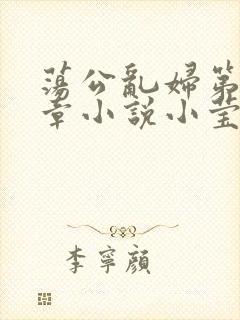 蕩公亂婦第
章小說小莹
李寧顏